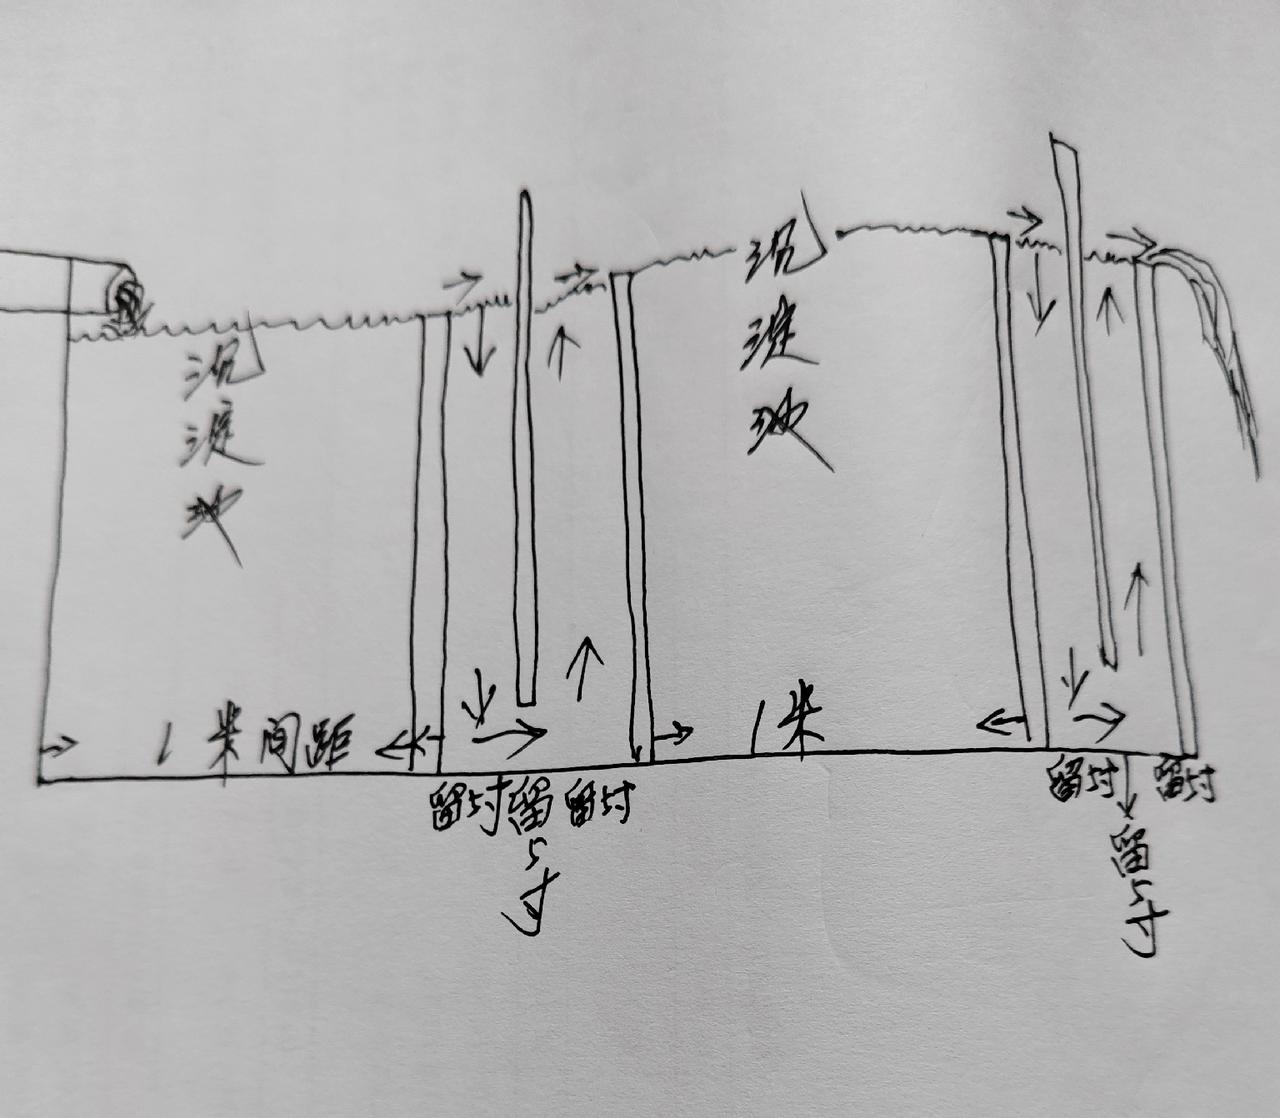 沉淀池
沉淀池
1米间距
1米
留5寸
留5寸
留5寸
留5寸
留5寸
留5寸